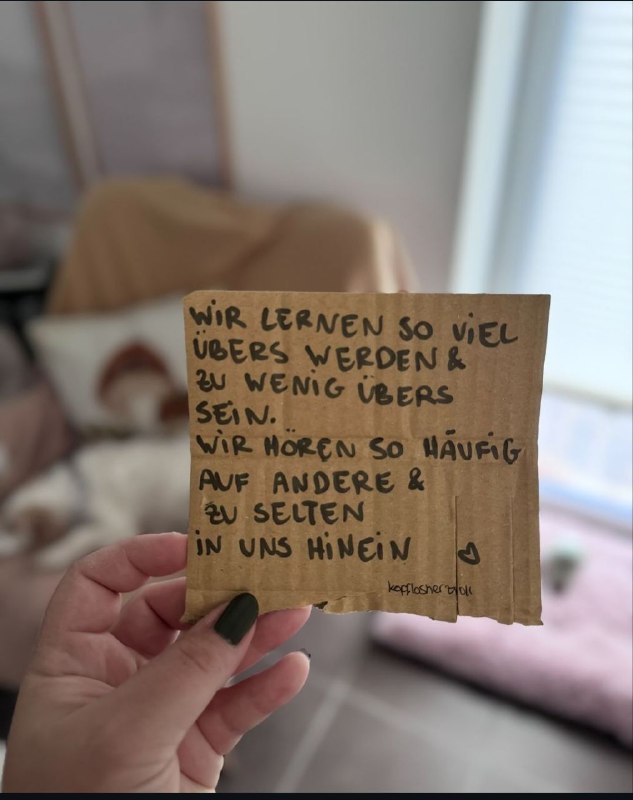 WiR LERNEN SO ViEL
ÜBERS WERDEN &
ZU WENiG ÜBERS
SEiN.
WiR HÖREN SO HÄUFiG
AUF ANDERE &
ZU SELTEN
iN UNS HiNEiN ♡
kopflosherzvoll